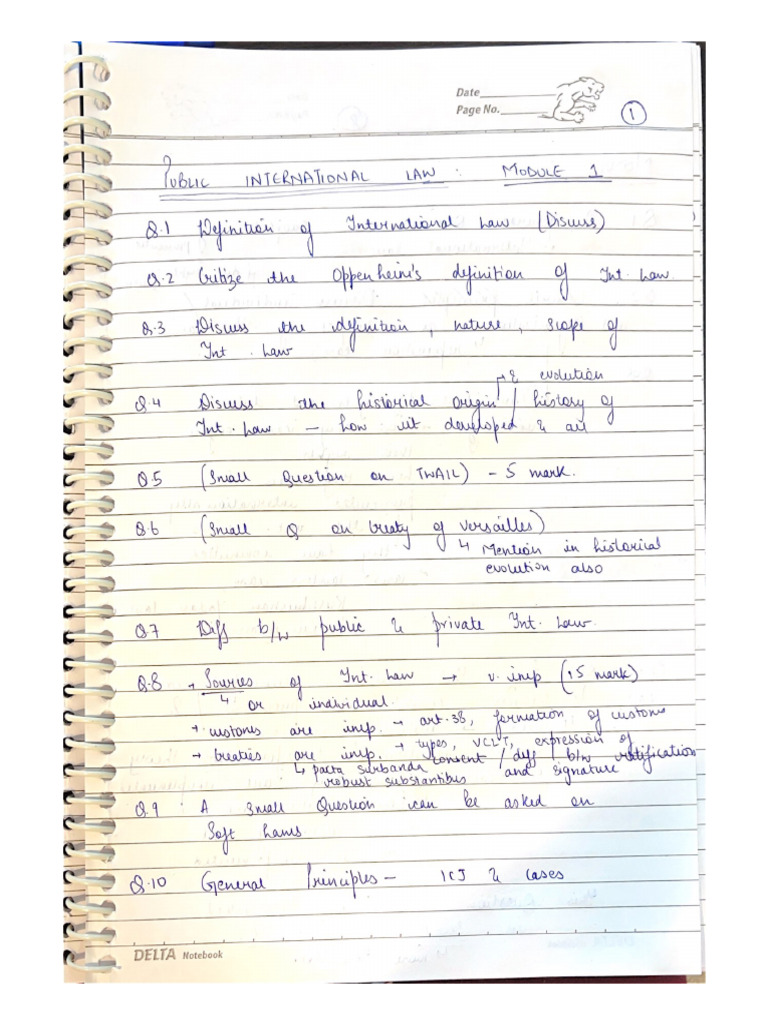 Date
Page No.
1
PUBLIC INTERNATIONAL LAW : MODULE 1
Q.1 Definition of International Law (Discuss)
Q.2 Critize the Oppenheim's definition of Int. Law
Q.3 Discuss the definition, nature, scope of
Int. Law
& evolution
Q4 Discuss the historical origin / history of
Int. Law – how it developed & all
Q.5 (Small Question on TWAIL) – 5 mark.
Q.6 (Small Q on treaty of versailles)
↳ Mention in historical
evolution also
Q.7 Diff b/w public & private Int. Law.
Q.8 → Sources of Int. Law → v. imp (15 mark)
↳ or individual.
→ customs are imp. → art. 38, formation of customs
→ treaties are imp. → types, VCLT, expression of
consent / diff b/w ratification
↳ pacta surbanda and signature
robust substantibus
Q.9 A small Question can be asked on
Soft Laws
Q.10 General Principles – ICJ & cases
DELTA Notebook